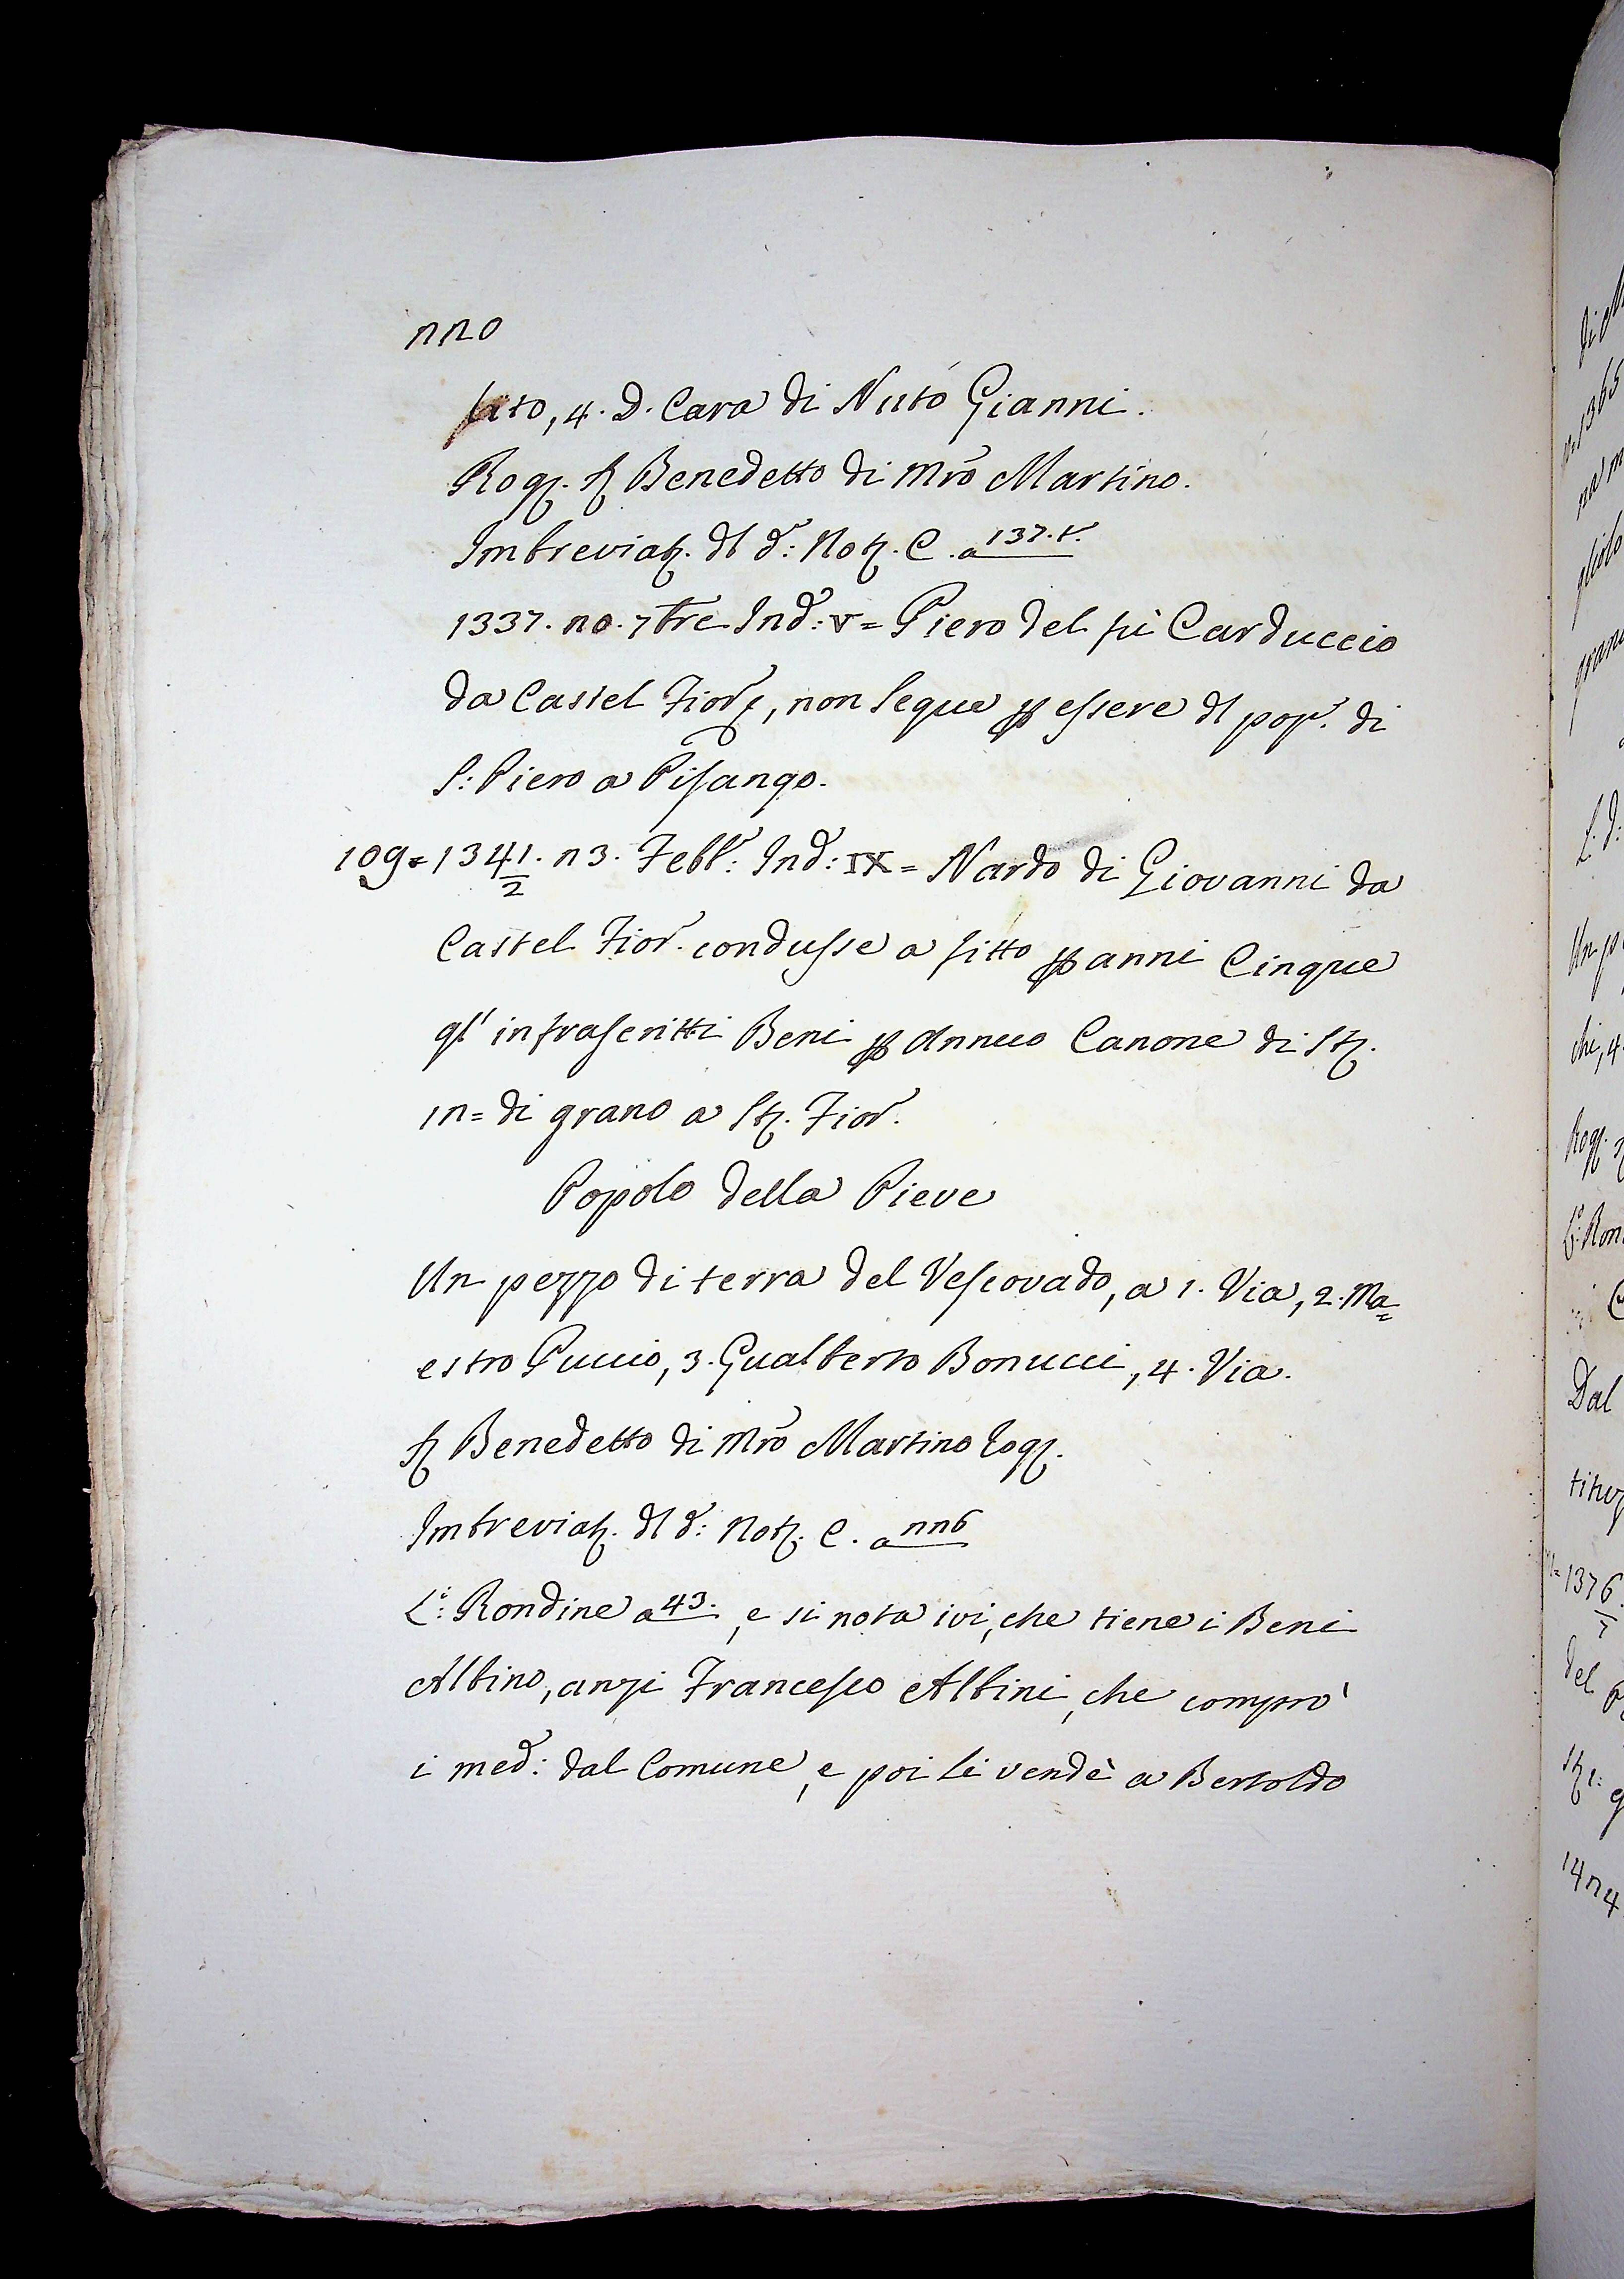 220
lato, 4. D. Cara di Nuto Gianni.
Rog. Sr Benedetto di Mro Martino.
Imbreviat. dl d: Not. C. a 137. t.
1337. 20. 7bre Ind: V = Piero del fù Carduccio
da Castel Fior., non segue p essere dl pop. di
S: Piero a Pisango.
109 = 1341/2. 23. Febb: Ind: IX = Nardo di Giovanni da
Castel Fior. condusse a fitto p anni Cinque
gl' infrascritti Beni p Annuo Canone di St.
12 = di grano a St. Fior.
Popolo della Pieve
Un pezzo di terra del Vescovado, a 1. Via, 2. Ma=
estro Puccio, 3. Gualberto Bonucci, 4. Via.
Sr Benedetto di Mro Martino rog.
Imbreviat. dl d: Not. C. a 226
L: Rondine a 43., e si nota ivi, che tiene i Beni
Albino, anzi Francesco Albini, che comprò
i med: dal Comune, e poi li vendè a Bertoldo